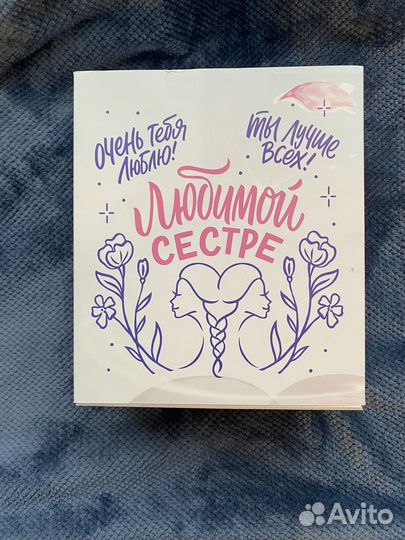 Очень тебя
люблю!
Ты лучше
всех!
Любимой
СЕСТРЕ
Avito